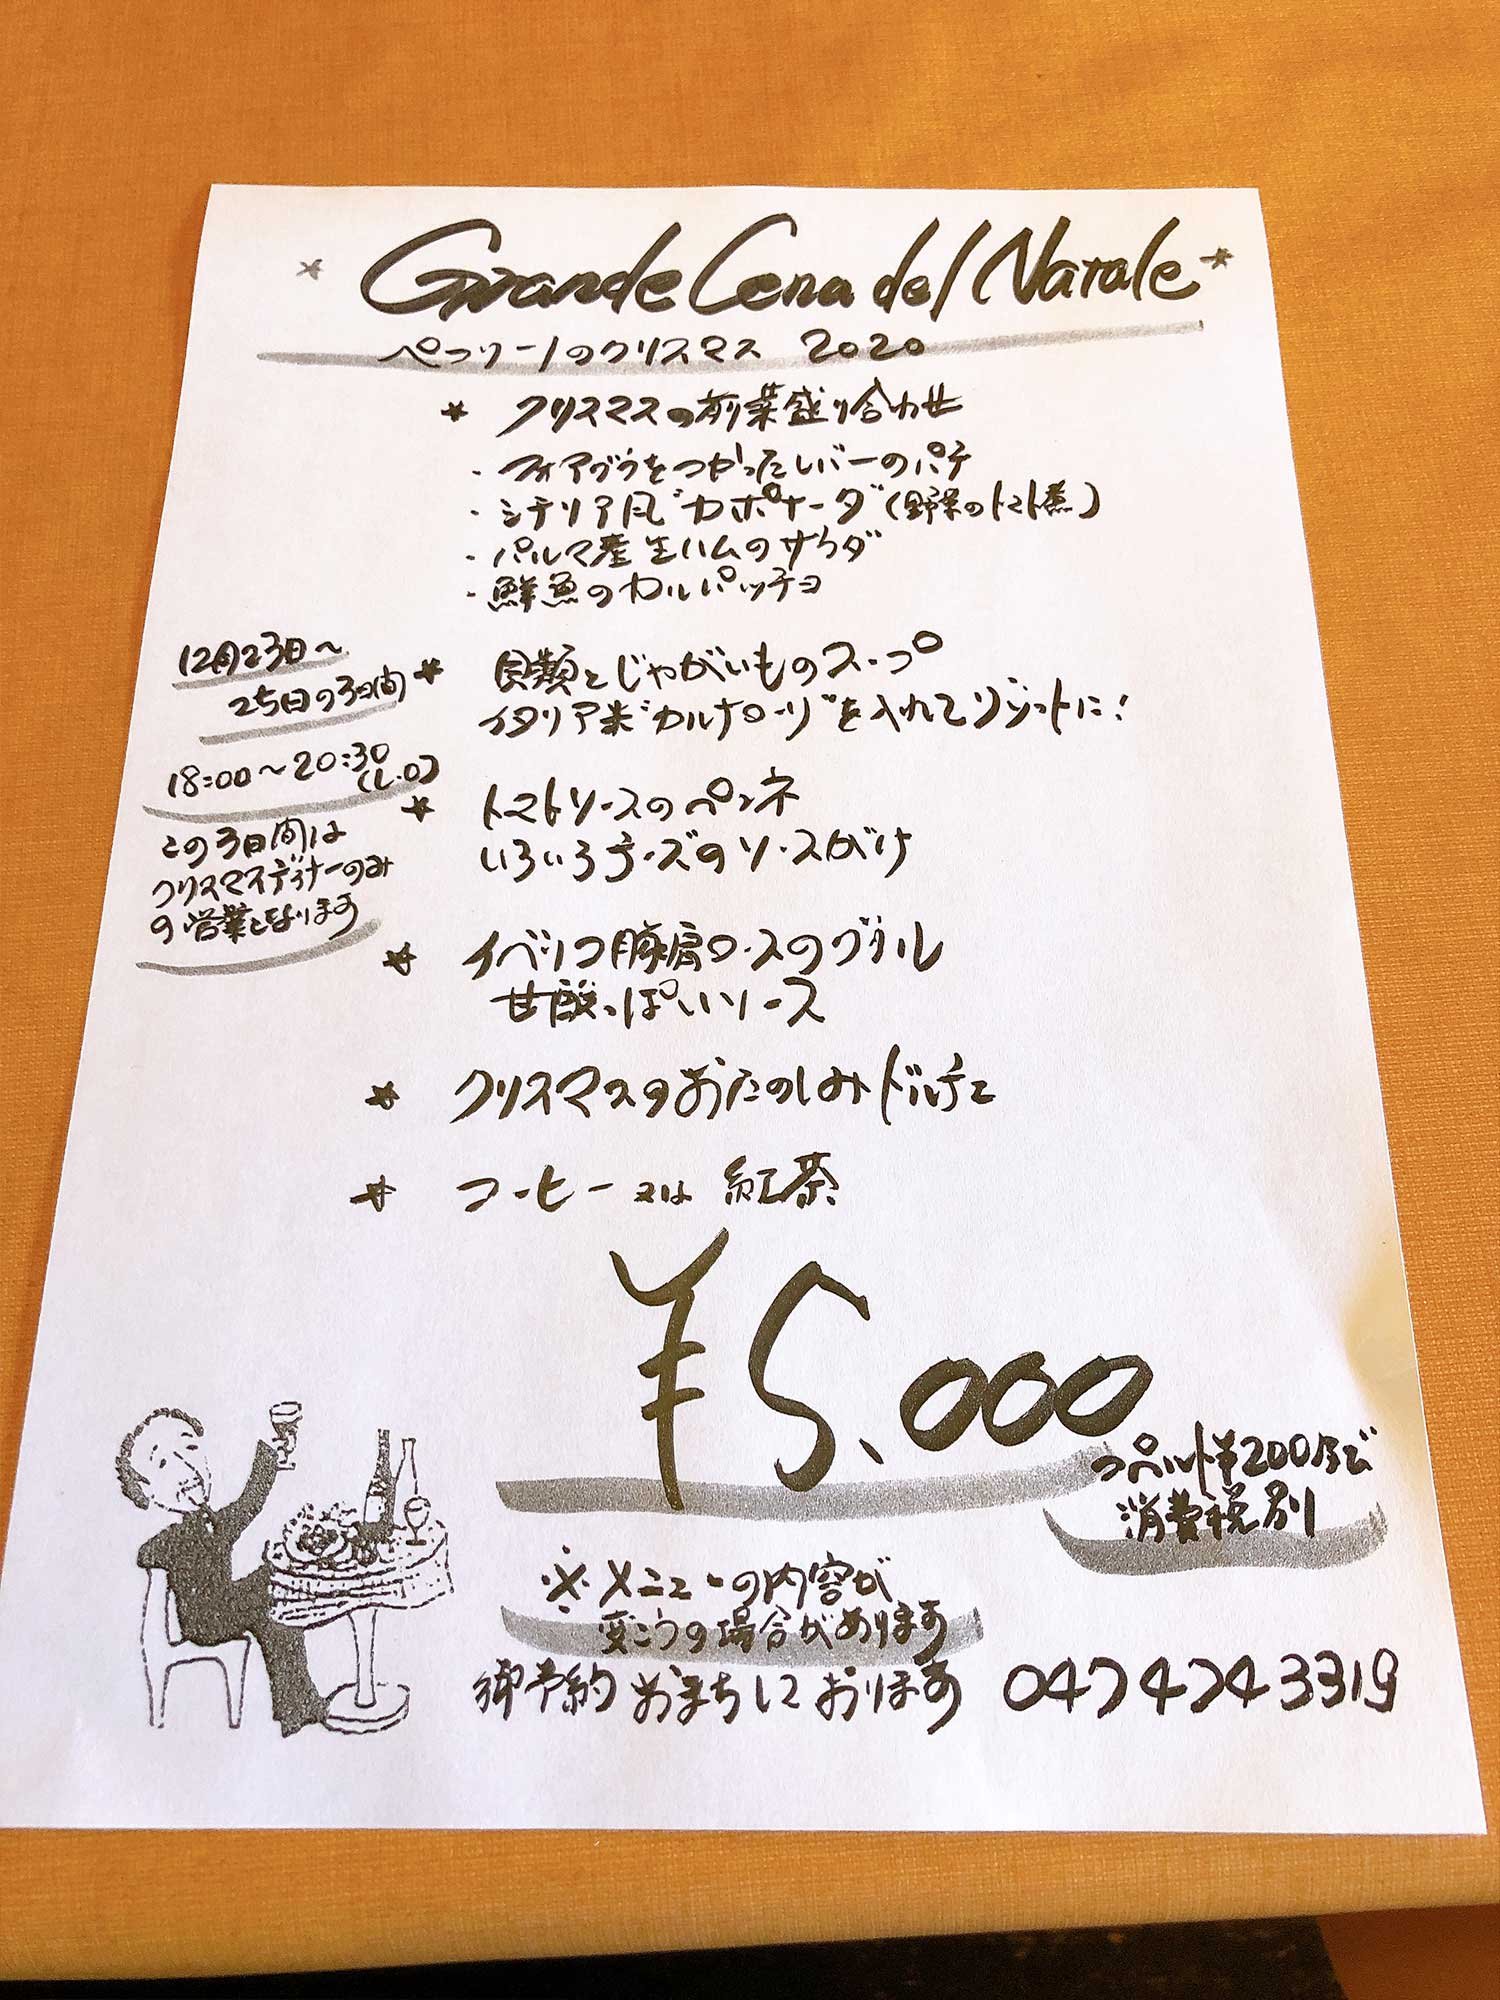 * Grande Cena del Natale *
ペコリーノのクリスマス 2020
* クリスマスの前菜盛り合わせ
・フォアグラをつかったレバーのパテ
・シチリア風"カポナータ"(野菜のトマト煮)
・パルマ産生ハムのサラダ
・鮮魚のカルパッチョ
12月23日〜
25日の3日間
18:00〜20:30
(L.O)
この3日間は
クリスマスディナーのみ
の営業となります
* 貝類とじゃがいものスープ
イタリア米"カルナローリ"を入れてリゾットに!
* トマトソースのペンネ
いろいろチーズのソースがけ
* イベリコ豚肩ロースのグリル
甘酸っぱいソース
* クリスマスのおたのしみドルチェ
* コーヒー又は紅茶
¥5,000
コペルト¥200
消費税別
※メニューの内容が
変こうの場合があります
御予約おまちしております 0474743319